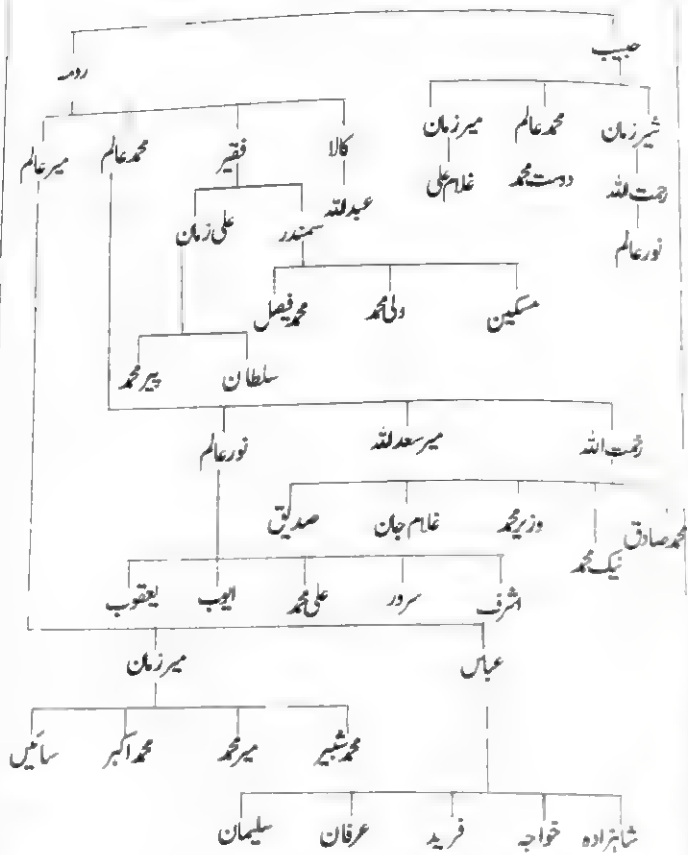 حبیب
رومہ
شیر زمان محمد عالم میر زمان
کالا فقیر محمد عالم میر عالم
رحمت اللہ دوست محمد غلام علی
عبداللہ سمندر علی زمان
نور عالم
مسکین ولی محمد محمد فیصل
سلطان پیر محمد
رحمت اللہ میر سعد اللہ نور عالم
محمد صادق نیک محمد وزیر محمد غلام جان صدیق
اشرف سرور علی محمد ایوب یعقوب
عباس میر زمان
محمد شبیر میر محمد محمد اکبر سائیں
شاہزادہ خواجہ فرید عرفان سلیمان